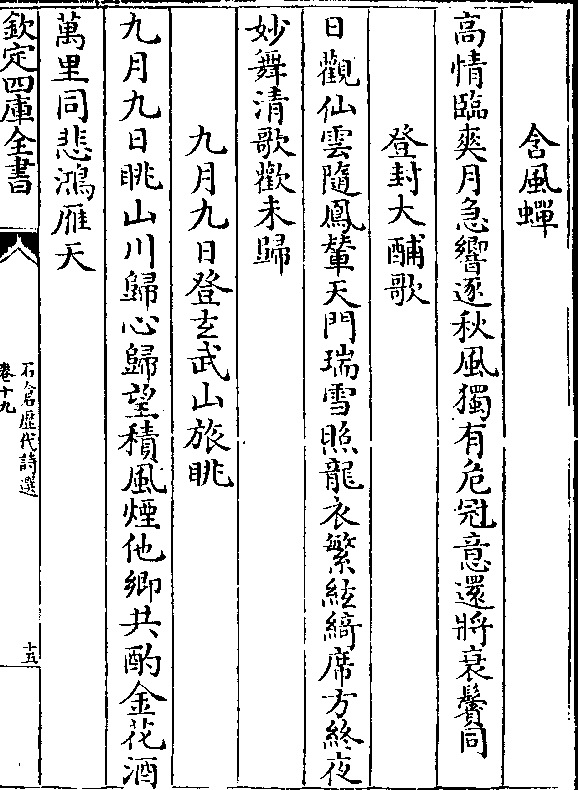 含風蟬
高情臨爽月急響逐秋風獨有危冠意還將衰鬢同
登封大酺歌
日觀仙雲隨鳳輦天門瑞雪照龍衣繁絃綺席方終夜
妙舞清歌歡未歸
九月九日登玄武山旅眺
九月九日眺山川歸心歸望積風煙他鄉共酌金花酒
萬里同悲鴻雁天
欽定四庫全書
石倉歷代詩選
卷十九
十五